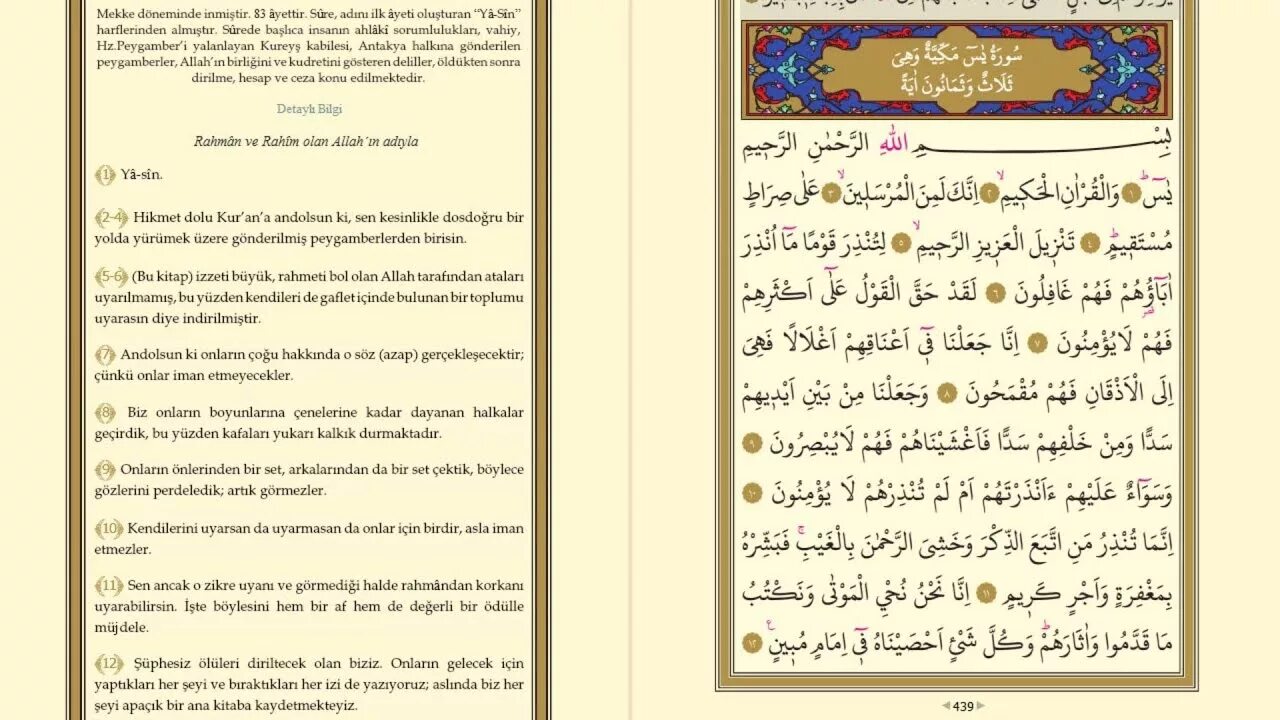 Mekke döneminde inmiştir. 83 âyettir. Sûre, adını ilk âyeti oluşturan “Yâ-Sîn”
harflerinden almıştır. Sûrede başlıca insanın ahlâkî sorumlulukları, vahiy,
Hz.Peygamber’i yalanlayan Kureyş kabilesi, Antakya halkına gönderilen
peygamberler, Allah’ın birliğini ve kudretini gösteren deliller, öldükten sonra
dirilme, hesap ve ceza konu edilmektedir.
Detaylı Bilgi
Rahmân ve Rahîm olan Allah´ın adıyla
﴾1﴿ Yâ-sîn.
﴾2-4﴿ Hikmet dolu Kur’an’a andolsun ki, sen kesinlikle dosdoğru bir
yolda yürümek üzere gönderilmiş peygamberlerden birisin.
﴾5-6﴿ (Bu kitap) izzeti büyük, rahmeti bol olan Allah tarafından ataları
uyarılmamış, bu yüzden kendileri de gaflet içinde bulunan bir toplumu
uyarasın diye indirilmiştir.
﴾7﴿ Andolsun ki onların çoğu hakkında o söz (azap) gerçekleşecektir;
çünkü onlar iman etmeyecekler.
﴾8﴿ Biz onların boyunlarına çenelerine kadar dayanan halkalar
geçirdik, bu yüzden kafaları yukarı kalkık durmaktadır.
﴾9﴿ Onların önlerinden bir set, arkalarından da bir set çektik, böylece
gözlerini perdeledik; artık görmezler.
﴾10﴿ Kendilerini uyarsan da uyarmasan da onlar için birdir, asla iman
etmezler.
﴾11﴿ Sen ancak o zikre uyanı ve görmediği halde rahmândan korkanı
uyarabilirsin. İşte böylesini hem bir af hem de değerli bir ödülle
müjdele.
﴾12﴿ Şüphesiz ölüleri diriltecek olan biziz. Onların gelecek için
yaptıkları her şeyi ve bıraktıkları her izi de yazıyoruz; aslında biz her
şeyi apaçık bir ana kitaba kaydetmekteyiz.
سُورَةُ يٰسٓ مَكِّيَّةٌ وَهِىَ
ثَلَاثٌ وَثَمَانُونَ اٰيَةً
بِسْمِ اللّٰهِ الرَّحْمٰنِ الرَّحٖيمِ
يٰسٓۜ ﴿١﴾ وَالْقُرْاٰنِ الْحَكٖيمِۙ ﴿٢﴾ اِنَّكَ لَمِنَ الْمُرْسَلٖينَۙ ﴿٣﴾ عَلٰى صِرَاطٍ
مُسْتَقٖيمٍۜ ﴿٤﴾ تَنْزٖيلَ الْعَزٖيزِ الرَّحٖيمِۙ ﴿٥﴾ لِتُنْذِرَ قَوْمًا مَٓا اُنْذِرَ
اٰبَٓاؤُ۬هُمْ فَهُمْ غَافِلُونَ ﴿٦﴾ لَقَدْ حَقَّ الْقَوْلُ عَلٰٓى اَكْثَرِهِمْ
فَهُمْ لَا يُؤْمِنُونَ ﴿٧﴾ اِنَّا جَعَلْنَا فٖٓى اَعْنَاقِهِمْ اَغْلَالًا فَهِىَ
اِلَى الْاَذْقَانِ فَهُمْ مُقْمَحُونَ ﴿٨﴾ وَجَعَلْنَا مِنْ بَيْنِ اَيْدٖيهِمْ
سَدًّا وَمِنْ خَلْفِهِمْ سَدًّا فَاَغْشَيْنَاهُمْ فَهُمْ لَا يُبْصِرُونَ ﴿٩﴾
وَسَوَٓاءٌ عَلَيْهِمْ ءَاَنْذَرْتَهُمْ اَمْ لَمْ تُنْذِرْهُمْ لَا يُؤْمِنُونَ ﴿١٠﴾
اِنَّمَا تُنْذِرُ مَنِ اتَّبَعَ الذِّكْرَ وَخَشِىَ الرَّحْمٰنَ بِالْغَيْبِۚ فَبَشِّرْهُ
بِمَغْفِرَةٍ وَاَجْرٍ كَرٖيمٍ ﴿١١﴾ اِنَّا نَحْنُ نُحْيِ الْمَوْتٰى وَنَكْتُبُ
مَا قَدَّمُوا وَاٰثَارَهُمْۜ وَكُلَّ شَىْءٍ اَحْصَيْنَاهُ فٖٓى اِمَامٍ مُبٖينٍۚ ﴿١٢﴾
439